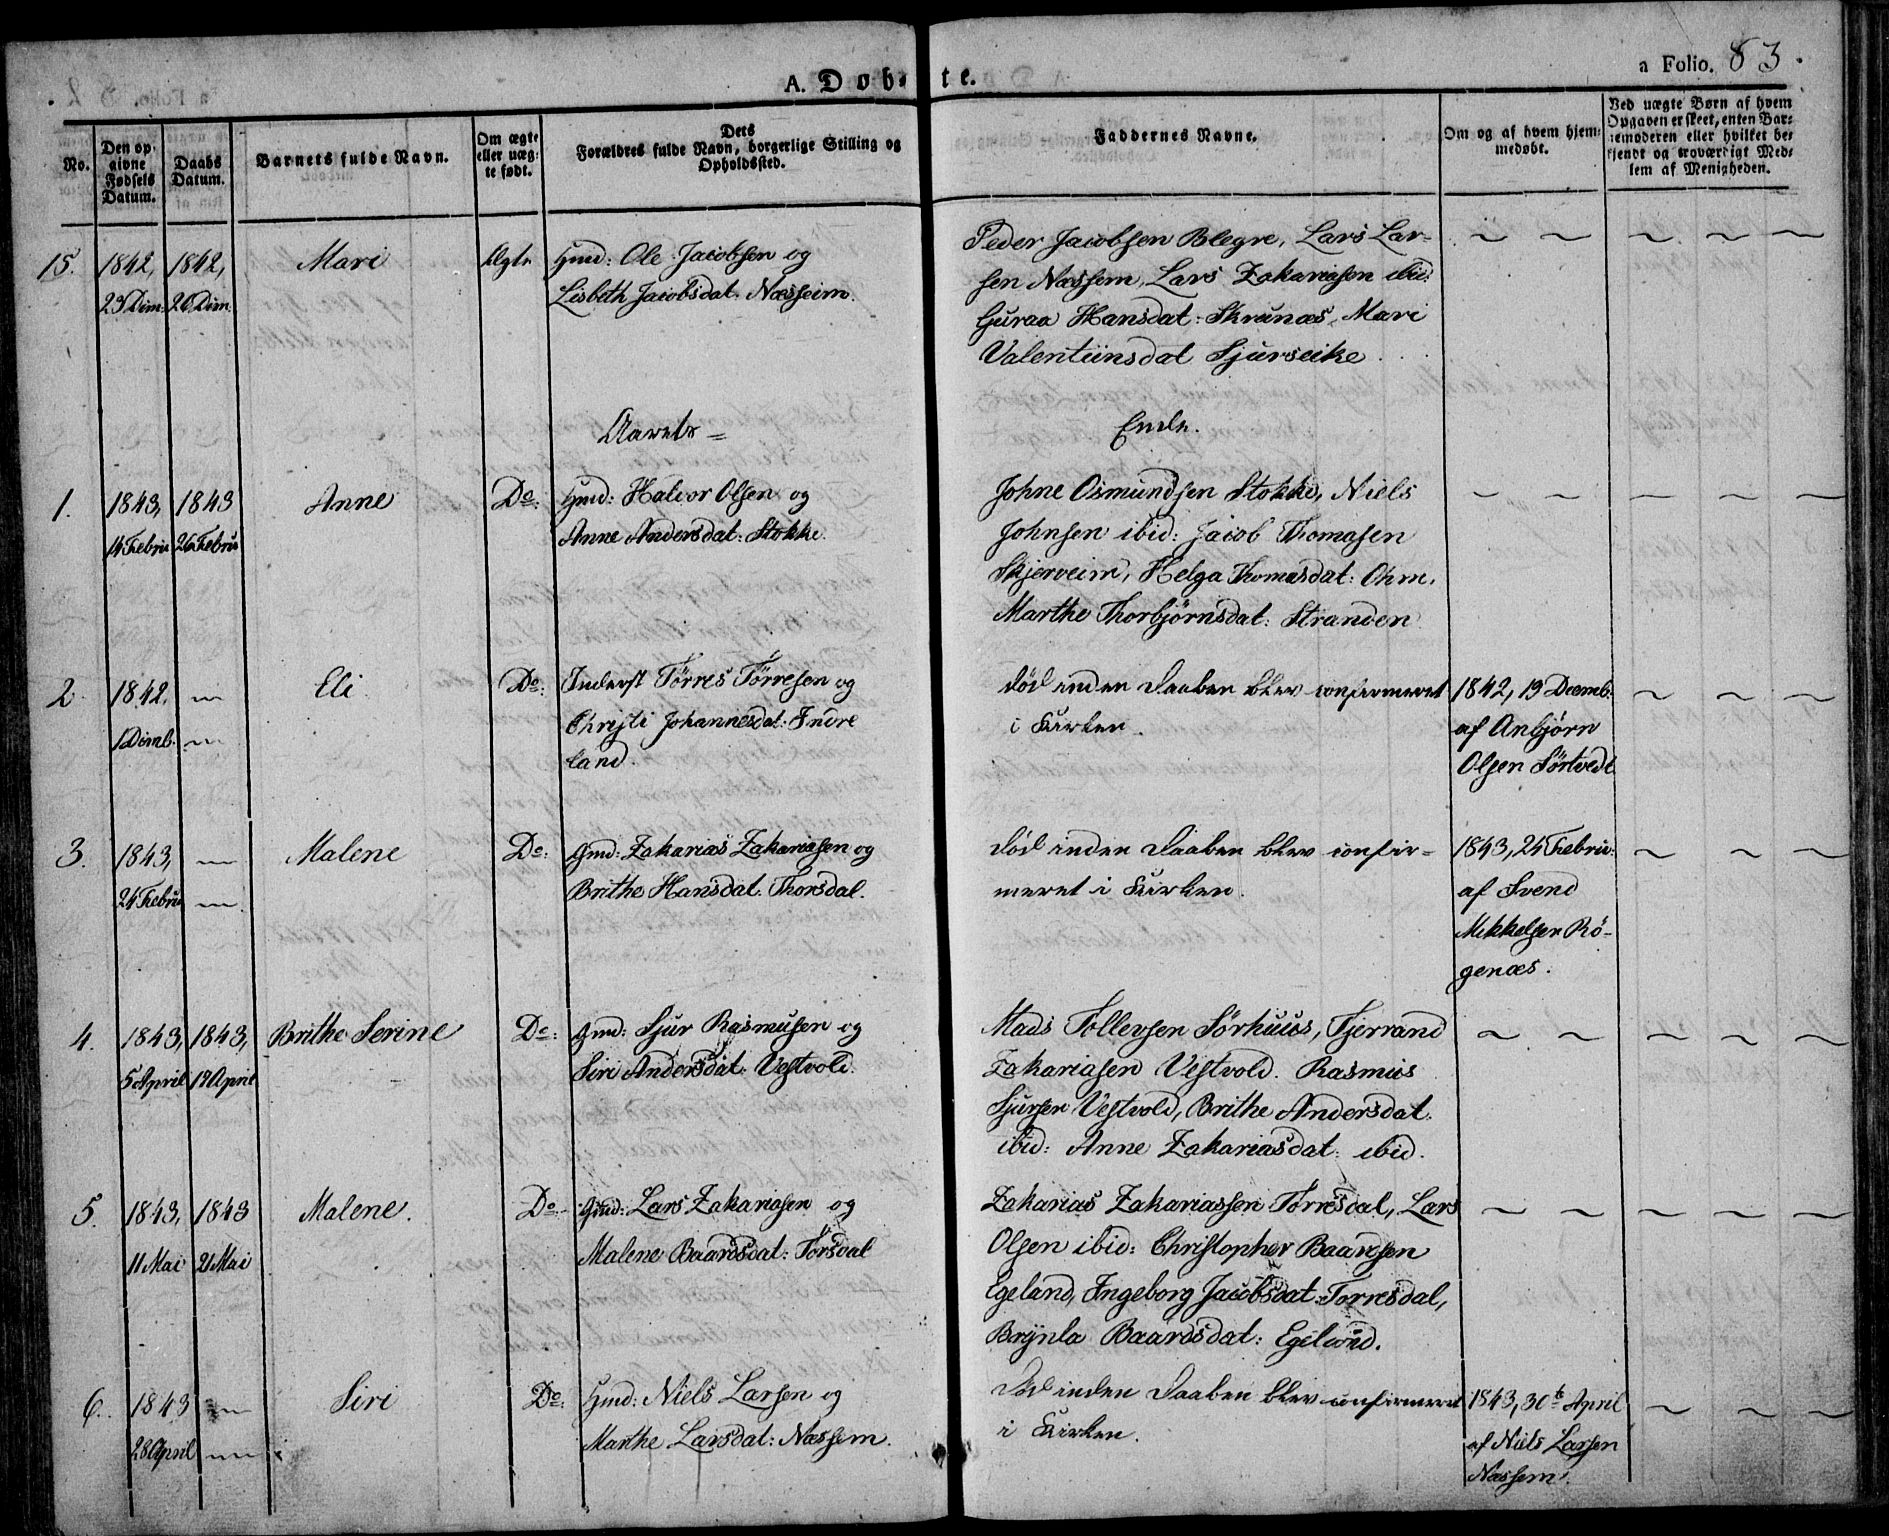 A. Døbte.
a Folio. 83.
No.
Den op-
givne
Fødsels
Datum.
Daabs
Datum.
Barnets fulde Navn.
Om ægte
eller uæg-
te født.
Dets
Forældres fulde Navn, borgerlige Stilling og
Opholdssted.
Faddernes Navne.
Om og af hvem hjem-
medøbt.
Ved uægte Børn af hvem
Opgaven er skeet, enten Bar-
nemoderen eller hvilket be-
kjendt og troværdigt Med-
lem af Menigheden.
15.
1842,
23 Decm.
1842,
26 Decm.
Mari
Ægte
Gmd: Ole Jacobsen og
Lisbeth Jacobsdat. Næsseim.
Peder Jacobsen Blegre, Lars Lar-
sen Næssem, Lars Zakariasen ibid:
Guraa Hansdat: Skrunæs, Mari
Valentiinsdat Sjurseike.
Aarets =
Ende.
1.
1843,
14 Febru
1843
26 Febru
Anne
Do:
Gmd: Halvor Olsen og
Anne Andersdat: Stokke.
Johne Osmundsen Stokke, Niels
Johnsen ibid: Jacob Thomasen
Skjerveim, Helga Thomasdat: Ohm,
Marthe Thorbjørnsdat: Stranden
2.
1842,
1 Decmb.
Eli
Do:
Inderst Tørres Tørresen og
Christi Johannesdat. Indre
land.
død inden Daaben blev confirmeret
i Kirken.
1842, 19 Decemb.
af Anbjørn
Olsen Sørtvedt
3.
1843,
24 Febru
Malene
Do:
Gmd: Zakarias Zakariasen og
Brithe Hansdat. Thorsdal.
død inden Daaben blev confir-
meret i Kirken.
1843, 24 Febru:
af Svend
Mikkelsen Rø-
genæs.
4.
1843,
5 April
1843,
17 April
Brithe Serine
Do:
Gmd: Sjur Rasmusen og
Siri Andersdat. Vestvold.
Mads Tollevsen Sørhuus, Tjerrand
Zakariasen Vestvold. Rasmus
Sjursen Vestvold, Brithe Andersdat.
ibid: Anne Zakariasdat: ibid.
5.
1843,
11 Mai
1843
21 Mai
Malene.
Do:
Gmd: Lars Zakariasen og
Malene Baardsdat: Torsdal
Zakarias Zakariassen Torresdal, Lars
Olsen ibid: Christopher Baardsen
Egeland, Ingeborg Jacobsdat. Torresdal,
Brynla Baardsdat: Egeland.
6.
1843
28 April
Siri
Do:
Gmd: Niels Larsen og
Marthe Larsdat: Næssem.
Død inden Daaben blev confirmeret
i Kirken.
1843, 30te April
af Niels Larsen
Næssem.